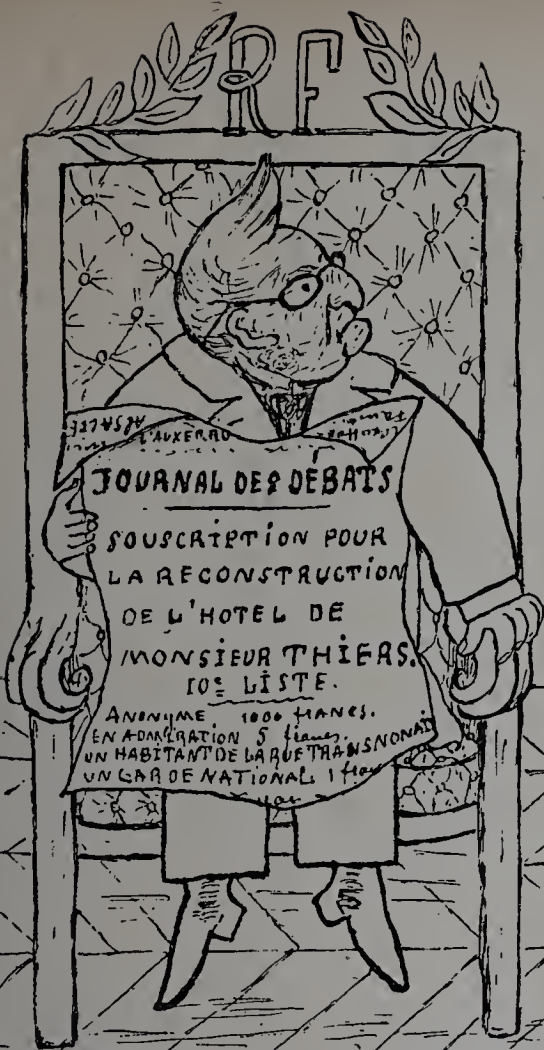 RF
ALSACE
L'AUXERRO
JOURNAL DES DÉBATS
SOUSCRIPTION POUR
LA RECONSTRUCTION
DE L'HOTEL DE
MONSIEUR THIERS.
10e LISTE.
ANONYME, 1000 francs.
EN ADMIRATION 5 francs.
UN HABITANT DE LA RUE TRANSNONAI
UN GARDE NATIONAL 1 fran